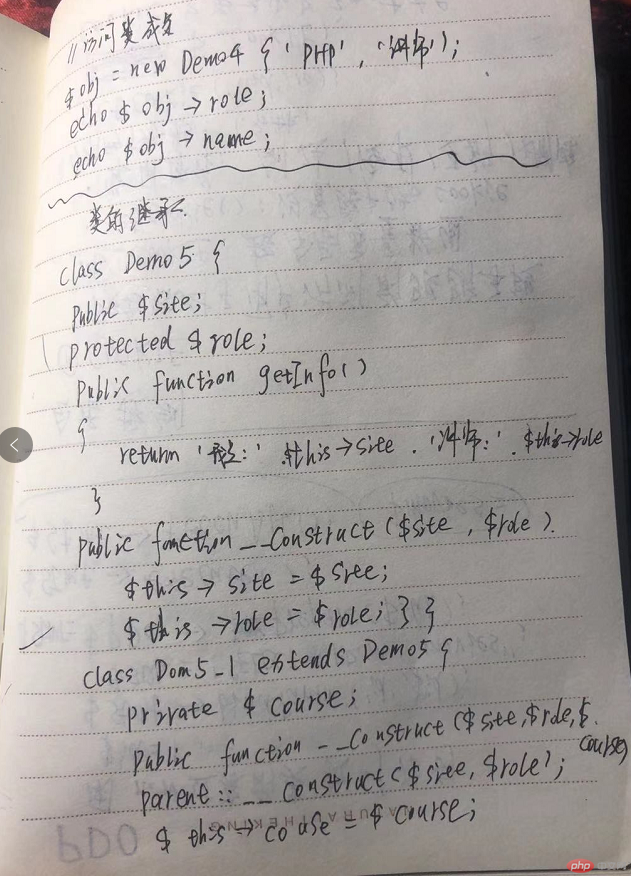 // 访问类成员
$obj = new Demo4 { 'PHP', '讲师');
echo $obj → role;
echo $obj → name;
类的继承
class Demo5 {
public $site;
protected $role;
public function getInfo()
{
return ' : ' . $this→site . '讲师:' . $this→role
}
public function __construct ($site, $role)
$this → site = $site;
$this → role = $role; } }
class Dom5_1 extends Demo5 {
private $course;
public function __construct ($site, $role, $
course)
parent:: __construct ($site, $role);
$this → couse = $course;
PDO
php